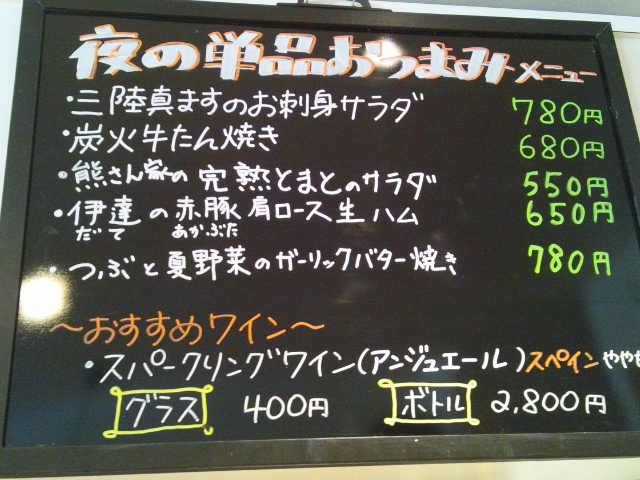 夜の単品おつまみメニュー
・三陸真ますのお刺身サラダ 780円
・炭火牛たん焼き 680円
・熊さん家の完熟とまとのサラダ 550円
・伊達の赤豚肩ロース生ハム 650円
だて あかぶた
・つぶと夏野菜のガーリックバター焼き 780円
～おすすめワイン～
・スパークリングワイン(アンジュエール)スペイン やや
グラス 400円 ボトル 2,800円